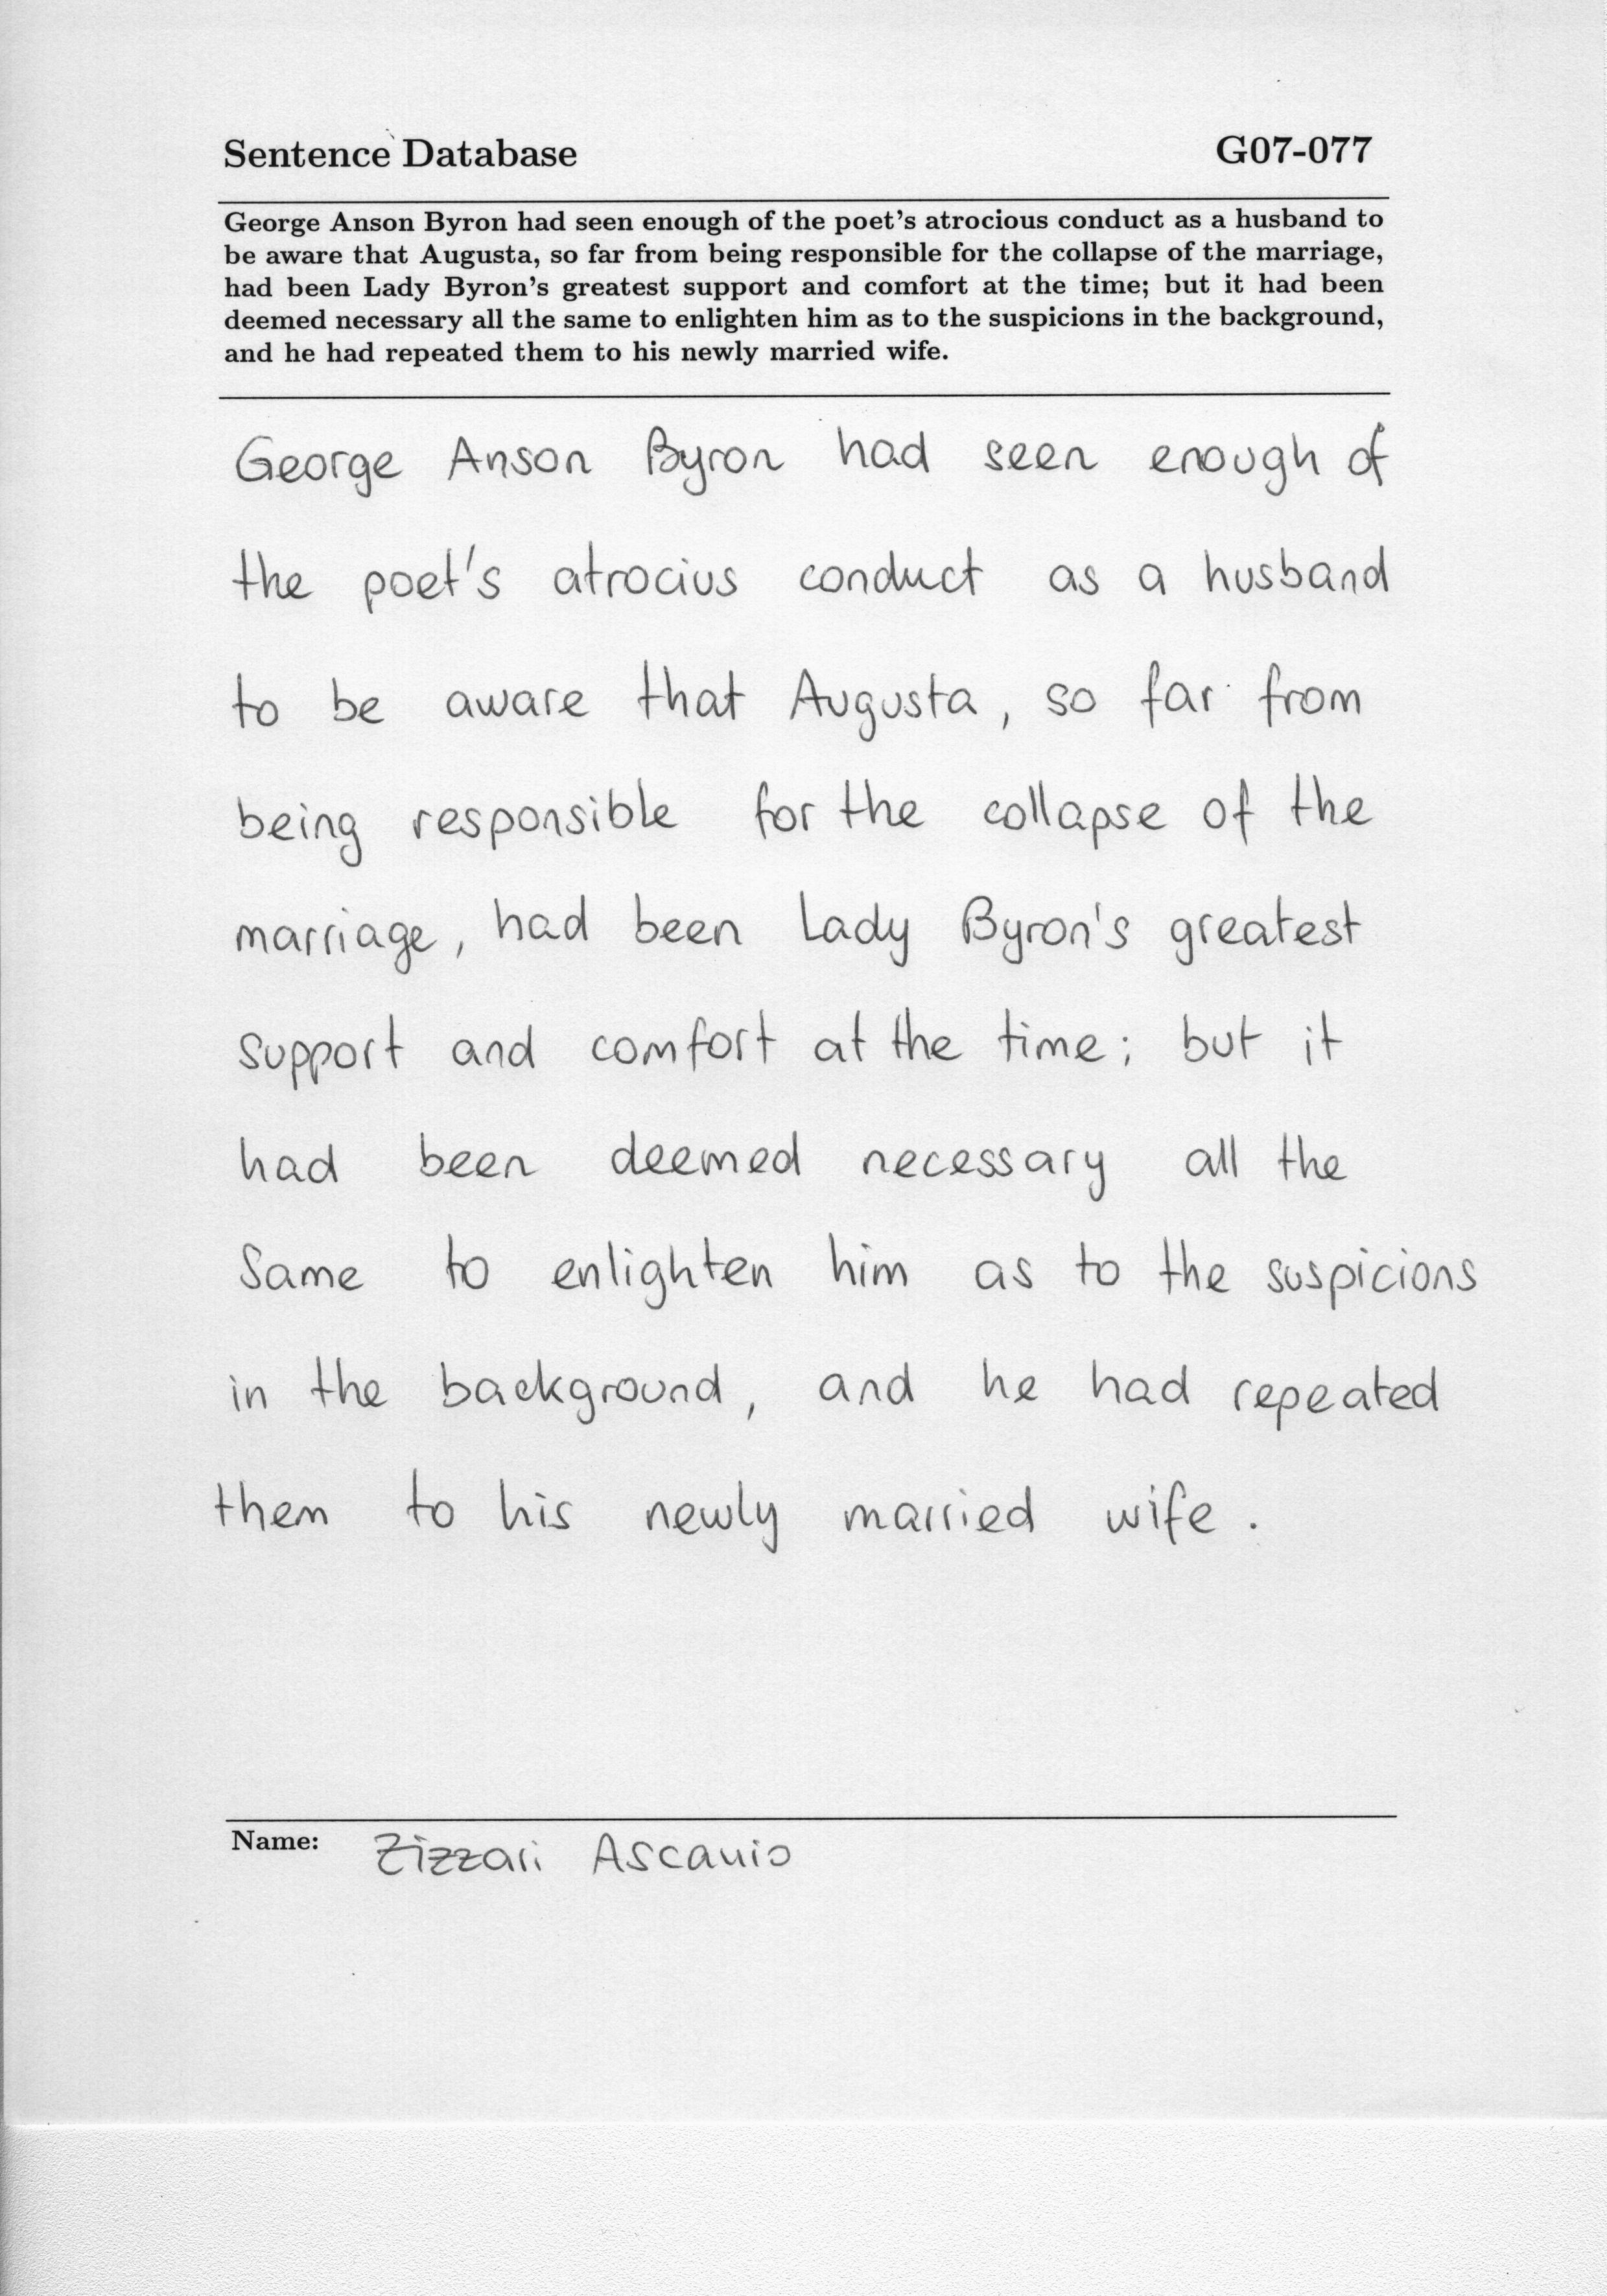 Sentence Database G07-077
George Anson Byron had seen enough of the poet's atrocious conduct as a husband to
be aware that Augusta, so far from being responsible for the collapse of the marriage,
had been Lady Byron's greatest support and comfort at the time; but it had been
deemed necessary all the same to enlighten him as to the suspicions in the background,
and he had repeated them to his newly married wife.
George Anson Byron had seen enough of
the poet's atrocius conduct as a husband
to be aware that Augusta, so far from
being responsible for the collapse of the
marriage, had been Lady Byron's greatest
support and comfort at the time; but it
had been deemed necessary all the
Same to enlighten him as to the suspicions
in the background, and he had repeated
them to his newly married wife.
Name: Zizzari Ascanio